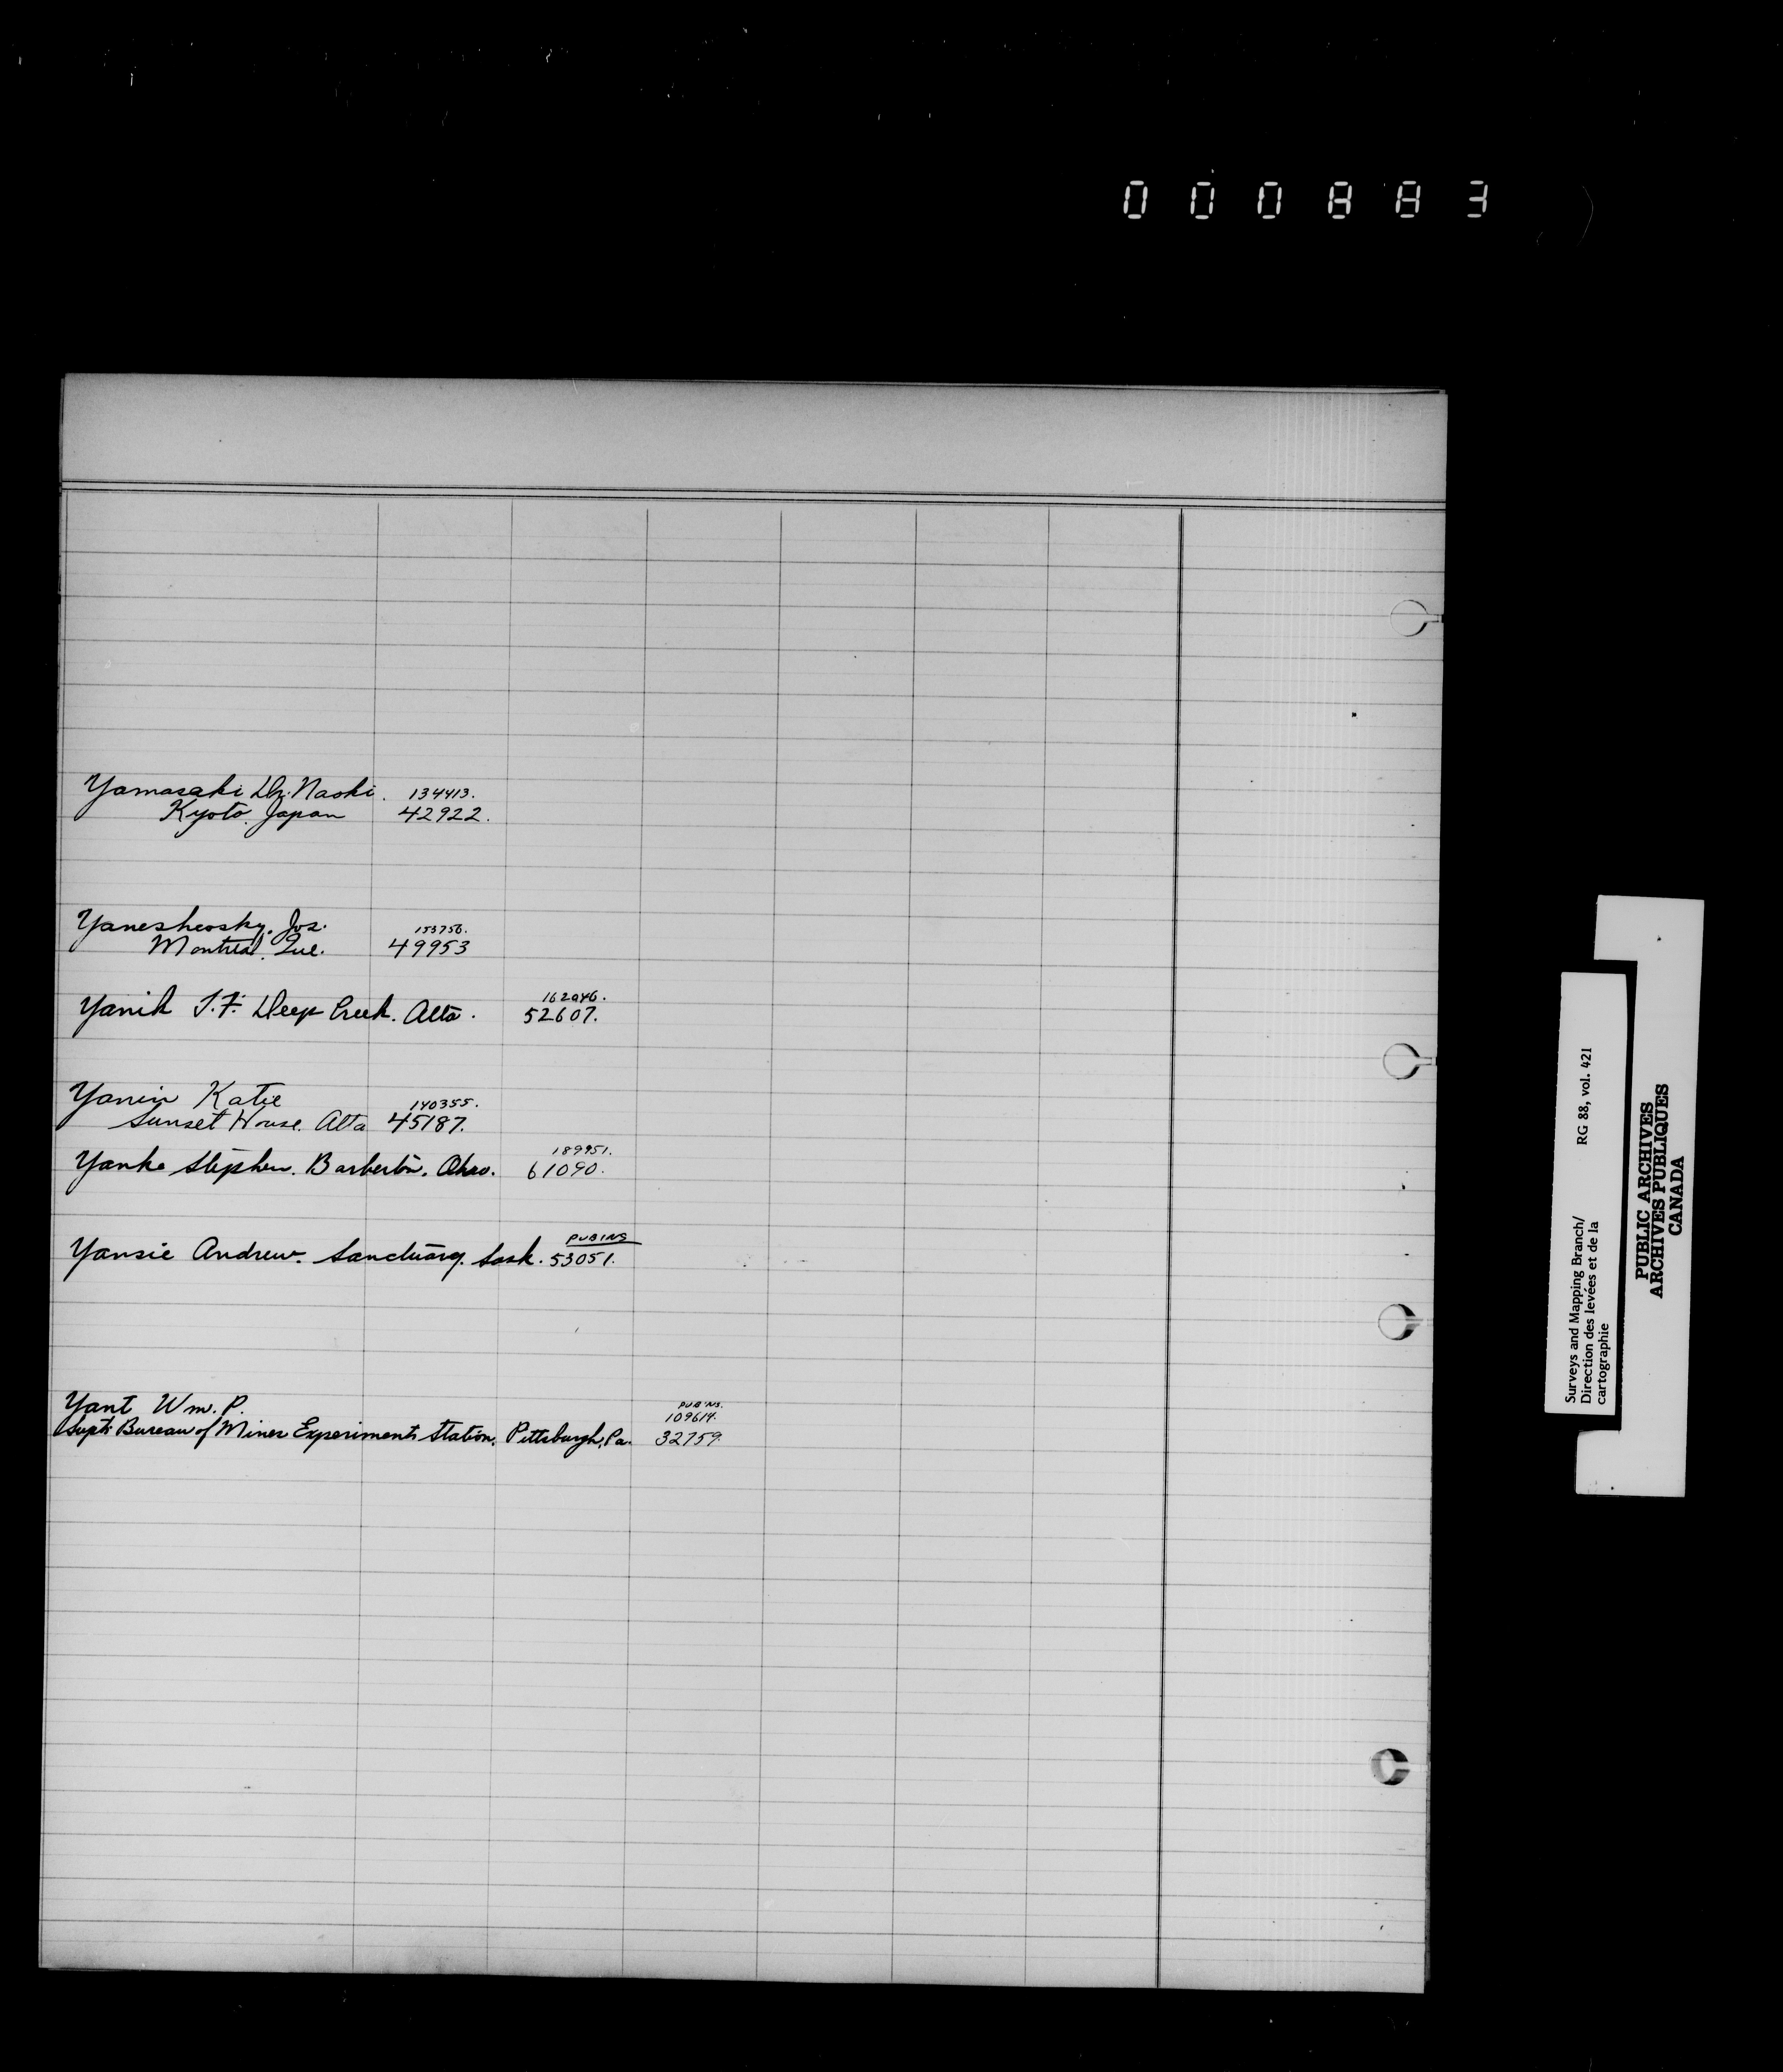 000883
Yamasaki Dr. Naoki. 134413.
Kyoto, Japan 42922.
Yaneshevsky, Jos. 153756.
Montreal, Que. 49953
162046.
Yanik T.F. Deep Creek. Alta. 52607.
Yanin Katie 140355.
Sunset House. Alta 45187.
189951.
Yanko Stephen. Barberton. Ohio. 61090.
PUBINS
Yansie Andrew. Sanctuary. Sask. 53051.
PUB'NS.
Yant Wm. P. 109614.
Supt. Bureau of Mines Experiments Station, Pittsburgh, Pa. 32759.
Surveys and Mapping Branch/ RG 88, vol. 421
Direction des levées et de la
cartographie
PUBLIC ARCHIVES
ARCHIVES PUBLIQUES
CANADA